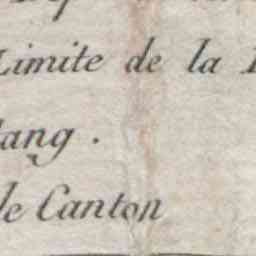 Limite de la
ang.
de Canton